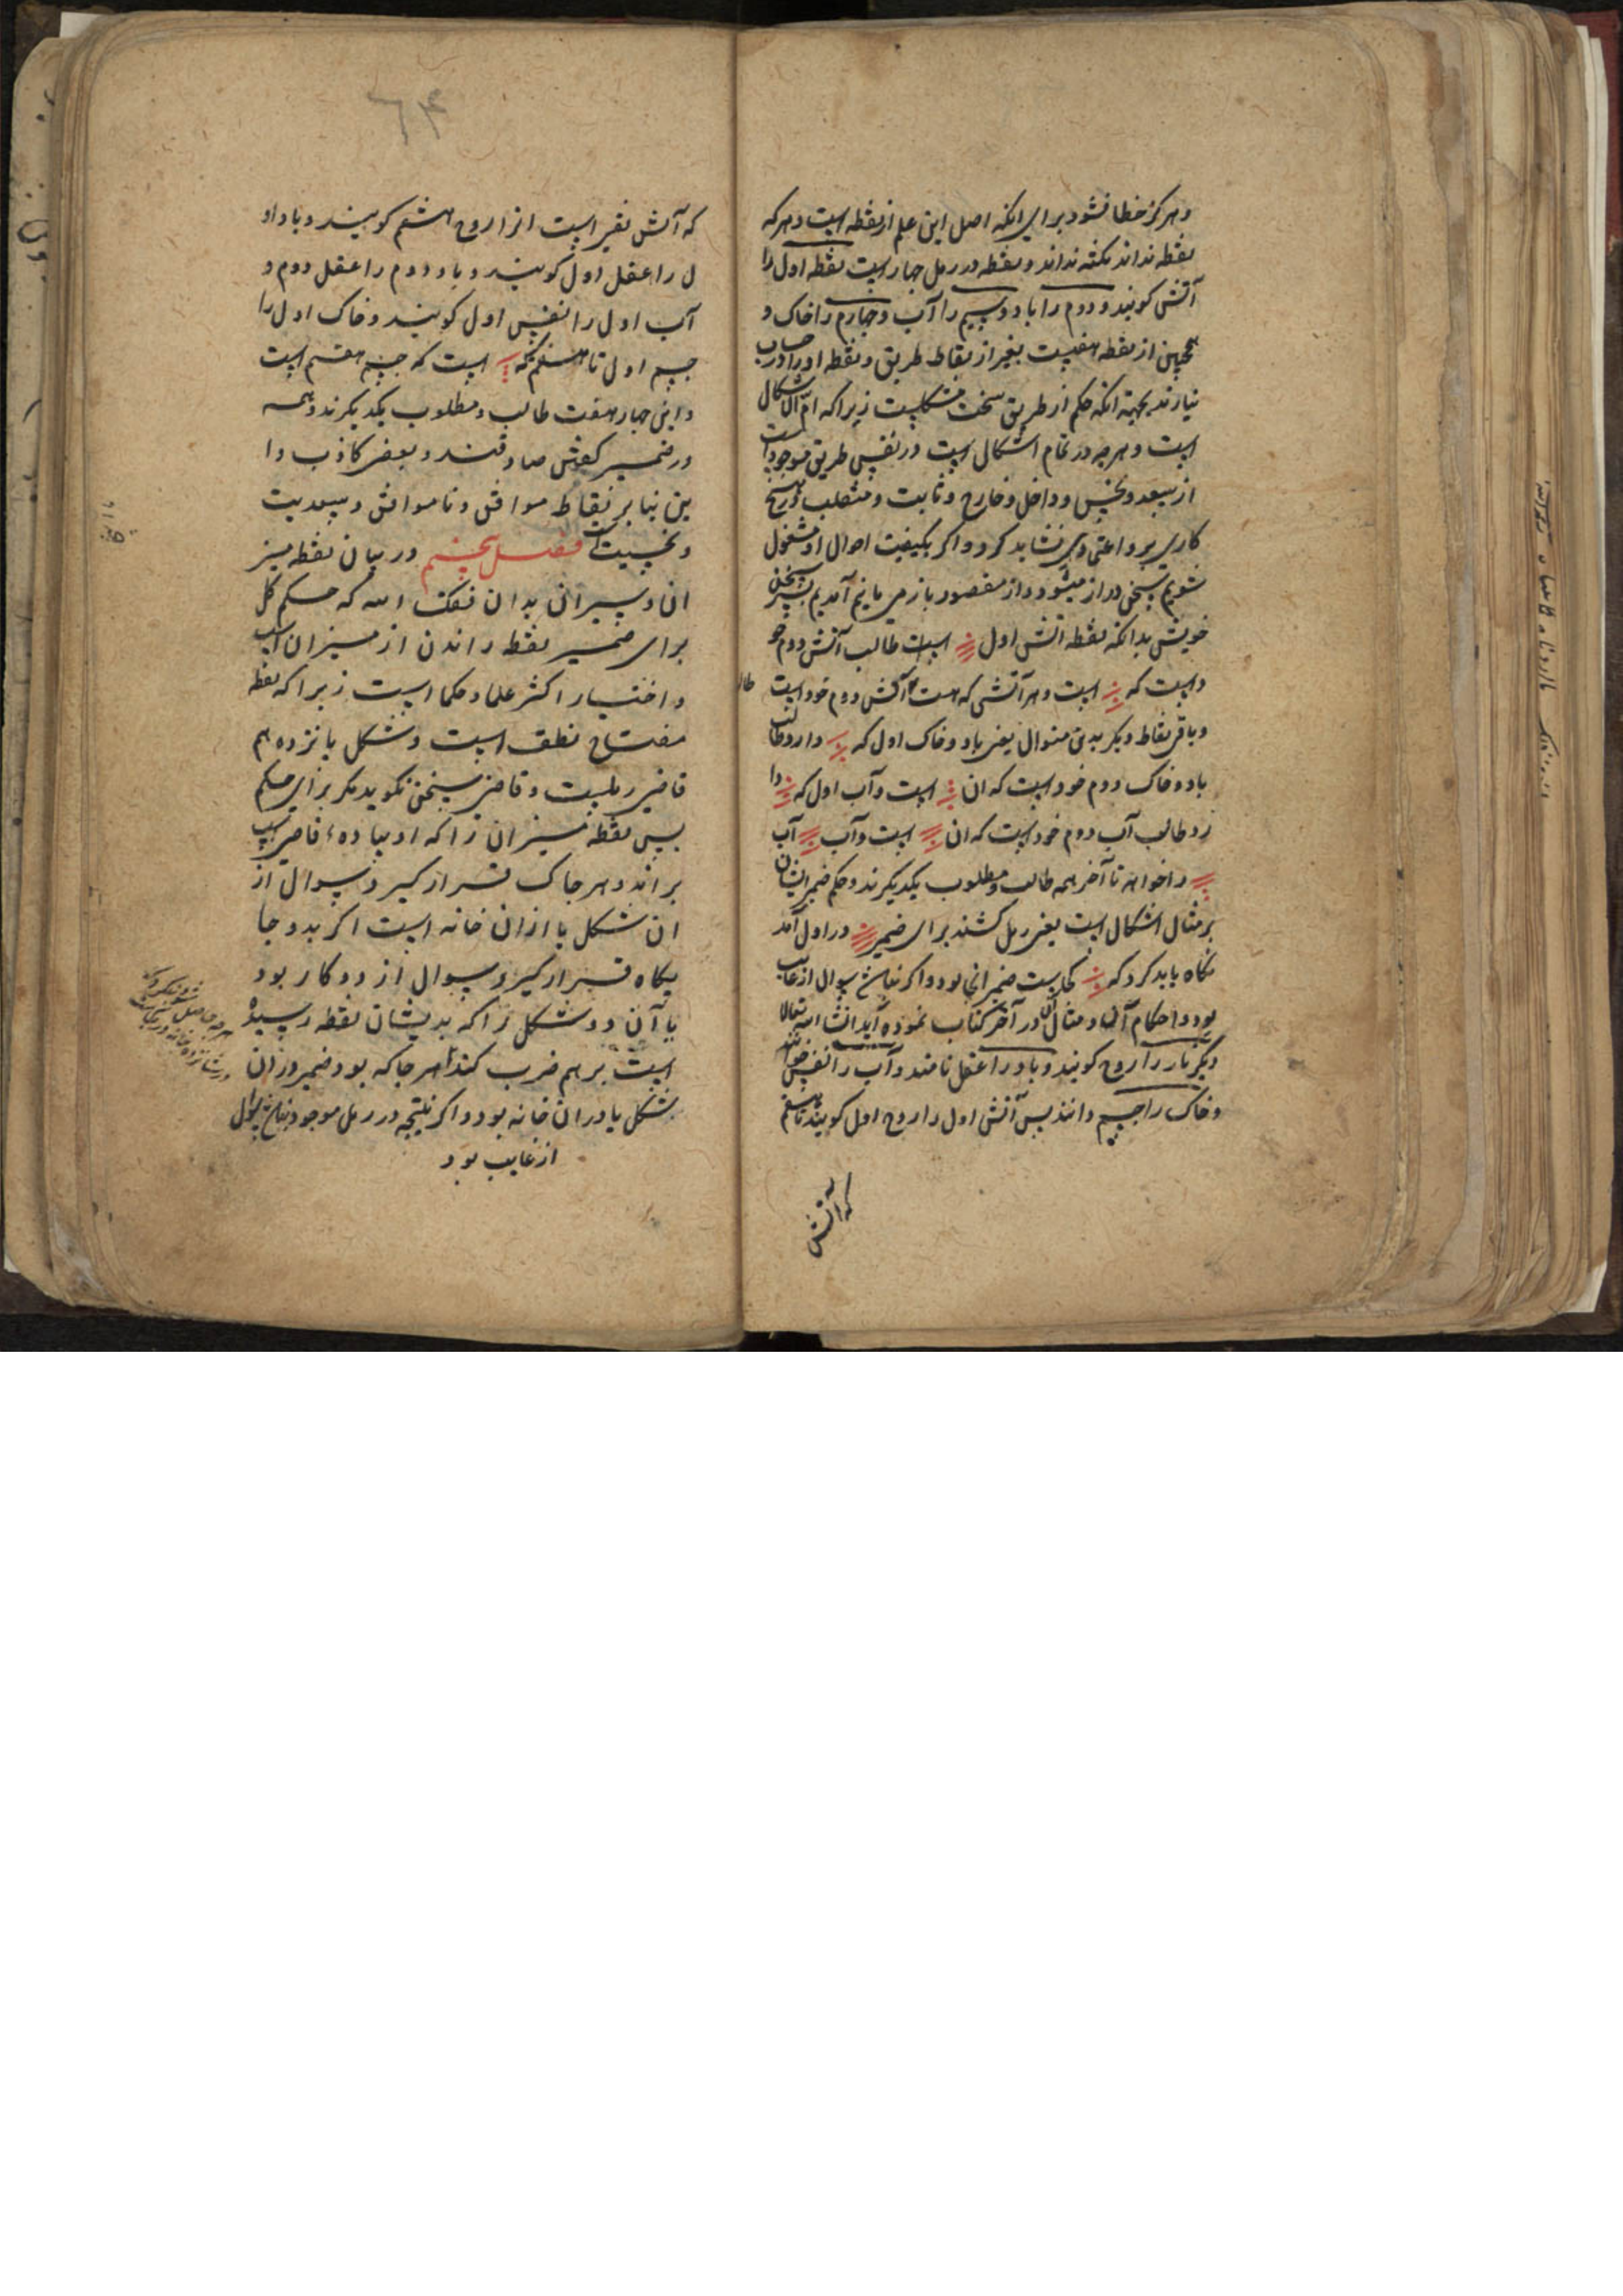 و هر کز خطا نشود برای انکه اصل این علم از نقطه است و هر که
نقطه نداند نکته نداند و نقطه در رمل چهار است نقطه اول را
آتش کویند و دوم را باد و سیم را آب و چهارم را خاک و
همچنین از نقطه هفتست بغیر از نقاط طریق و نقطه او را در حساب
نیارند بجهة انکه حکم از طریق سخت مشکلست زیرا که ام الاشکال
است و هرچه در تمام اشکال است در نفس طریق موجود است
از سعد و نحس و داخل و خارج و ثابت و منقلب و در هیچ
کاری بر و اعتمادی نشاید کرد و اکر بکیفیت احوال او مشغول
شویم سخن دراز میشود و از مقصود باز می مانیم آمدیم بسر سخن
خویش بدانکه نقطه آتش اول است طالب آتش دوم خو
د است که است و هر آتشی که هست آتش دوم خود است
طا
و باقی نقاط دیکر بدین منوال یعنی باد و خاک اول که دارد طالب
باد و خاک دوم خود است که ان است و آب اول که دا
رد طالب آب دوم خود است که ان است و آب آب
را خواهد تا آخر همه طالب و مطلوب یکدیکرند و حکم ضمیر ایشان
بر مثال اشکال است یعنی رمل کشند برای ضمیر در اول آمد
نکاه باید کرد که کجاست ضمیر انجا بود و اکر نباشد سوال از غایب
بود و احکام آن و مثال آن در آخر کتاب نموده آید انشا الله تعالا
دیکر نار را روح کویند و باد را عقل نامند و آب را نفس خوانند
و خاک را جسم دانند پس آتش اول را روح اول کویند تا هشتم
که آتش
۶۴
که آتش نقیر است انرا روح هشتم کویند و باد او
ل را عقل اول کویند و باد دوم را عقل دوم و
آب اول را نفس اول کویند و خاک اول را
جسم اول تا هشتم که است که جسم هفتم است
و این چهار هفت طالب و مطلوب یکدیکرند و همه
در ضمیر کفتن صادقند و بعضی کاذب و ا
ین بنا بر نقاط موافق و ناموافق و سعدیت
و نحسیت است فصل پنجم در بیان نقطه میز
ان و سیر ان بدان وفقک الله که حکم کل
برای ضمیر نقطه راندن از میزان است
و اختیار اکثر علما و حکما است زیرا که نقطه
مفتاح نطق است و شکل پانزدهم
قاضی رملست و قاضی سخن نکوید مکر برای حکم
پس نقطه میزان را که
براند و هر جا که قرار کیرد سوال از
ان شکل یا از ان خانه است اکر بدو جا
یکاه قرار کیرد سوال از دو کار بود
یا آن دو شکل را که بدیشان نقطه رسیده
است بر هم ضرب کند هر جا که بود ضمیر در ان
شکل یا در ان خانه بود و اکر نتیجه در رمل موجود نباشد سوال
از غایب بود
هر چه حاصل شود